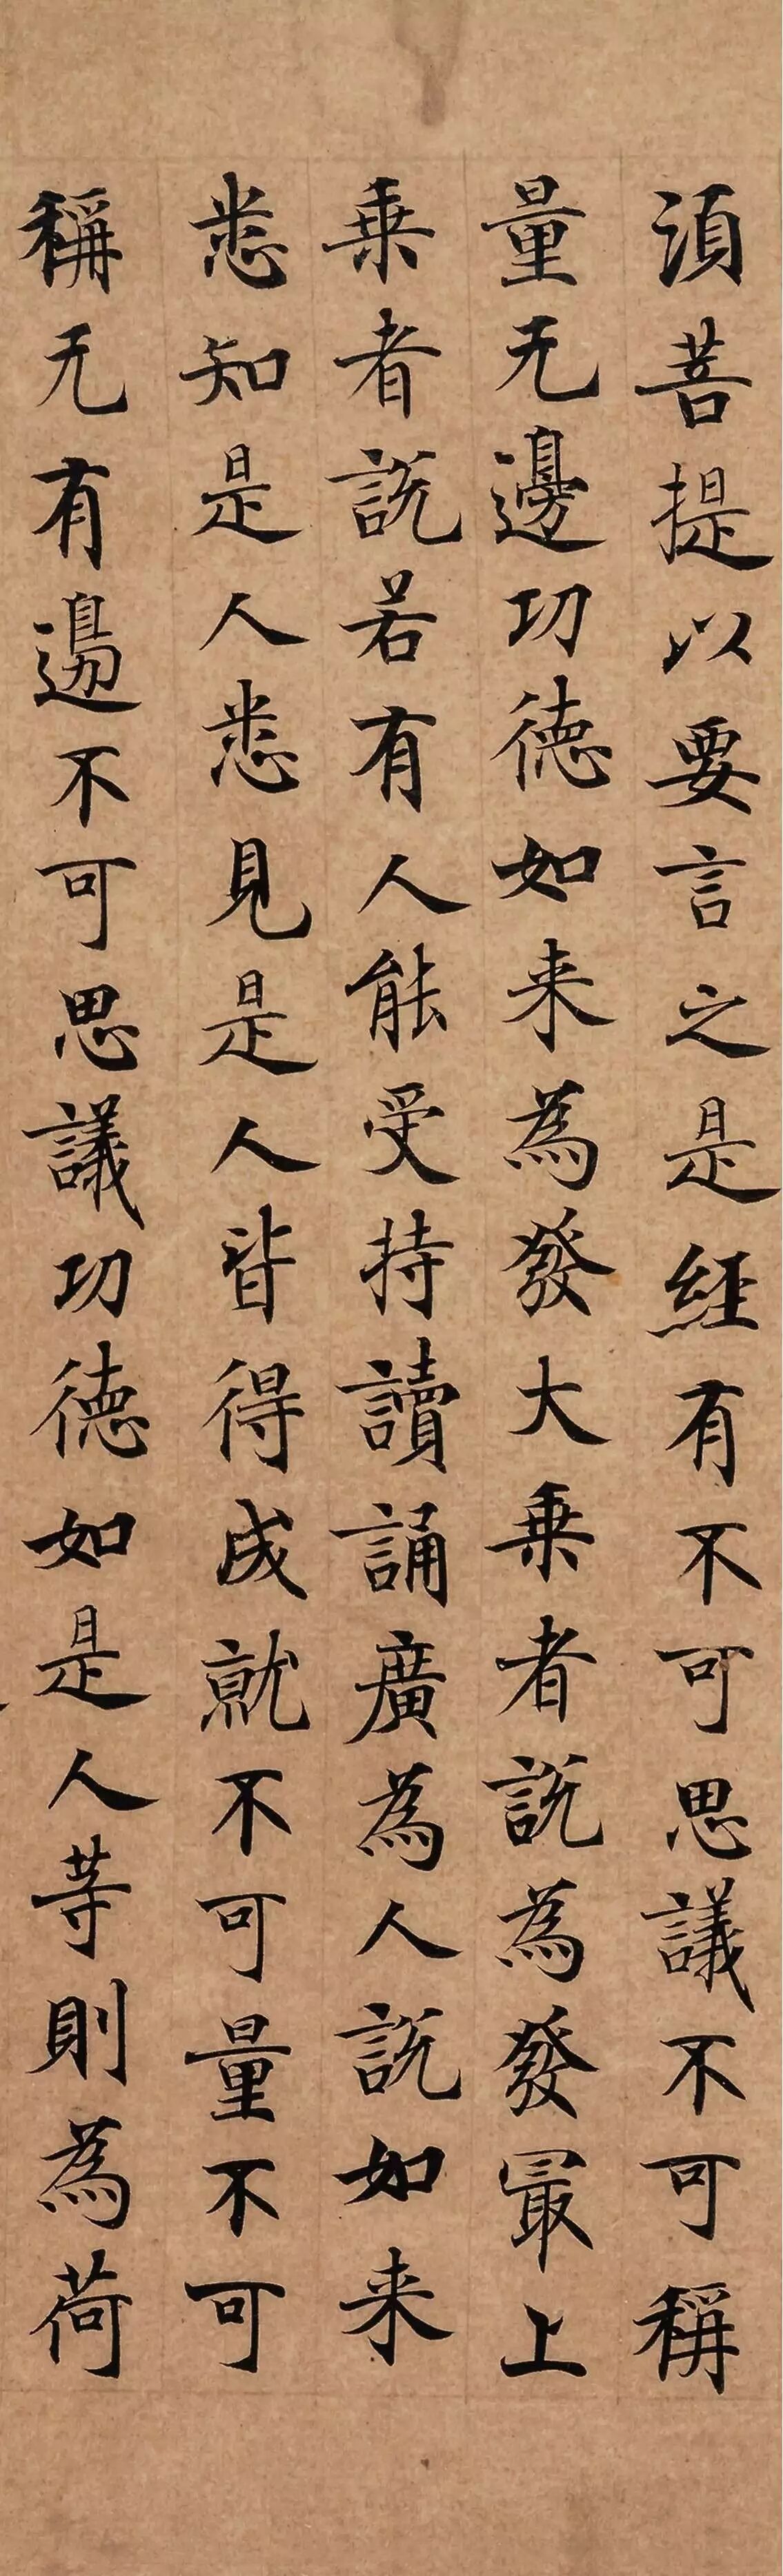 湏菩提以要言之是經有不可思議不可稱
量无邊功德如来為發大乗者說為發冣上
乗者說若有人能受持讀誦廣為人說如来
悉知是人悉見是人皆得成就不可量不可
稱无有邊不可思議功德如是人等則為荷